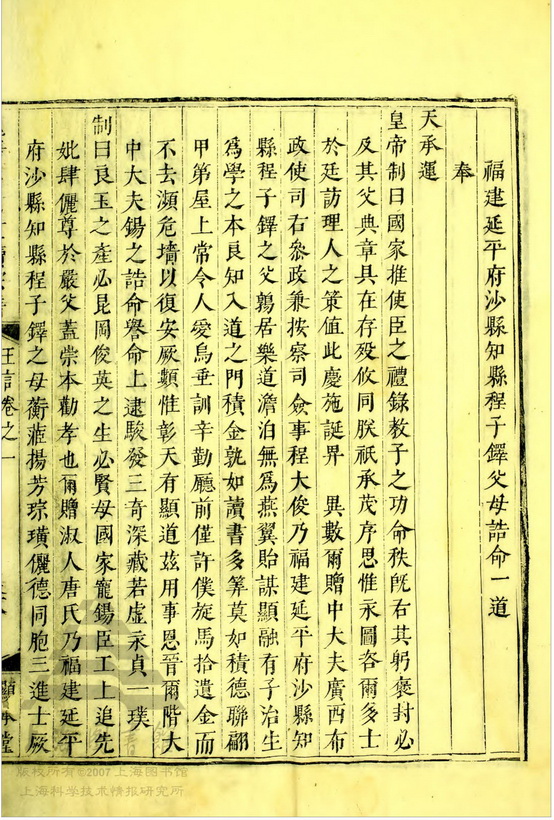 福建延平府沙縣知縣程子鐸父母誥命一道
奉
天承運
皇帝制曰國家推使臣之禮錄教子之功命秩旣右其躬褒封必
及其父典章具在存殁攸同朕祇承茂序思惟永圖咨爾多士
於廷訪理人之策值此慶施誕畀 異數爾贈中大夫廣西布
政使司右叅政兼按察司僉事程大俊乃福建延平府沙縣知
縣程子鐸之父鶉居樂道澹泊無爲燕翼貽謀顯融有子治生
爲學之本良知入道之門積金孰如讀書多筭莫如積德聯翩
甲第屋上常令人愛烏垂訓辛勤廳前僅許僕旋馬拾遺金而
不去瀕危墻以復安厥類惟彰天有顯道茲用事恩晉爾階大
中大夫錫之誥命譽命上逮駿發三奇深藏若虛永貞一璞
制曰良玉之產必昆岡俊英之生必賢母國家寵錫臣工上追先
妣肆儷尊於嚴父蓋崇本勸孝也爾贈淑人唐氏乃福建延平
府沙縣知縣程子鐸之母蘅蒞揚芳琮璜儷德同胞三進士厥
王言卷之一
堂
版权所有©2007上海图书馆
上海科学技术情报研究所